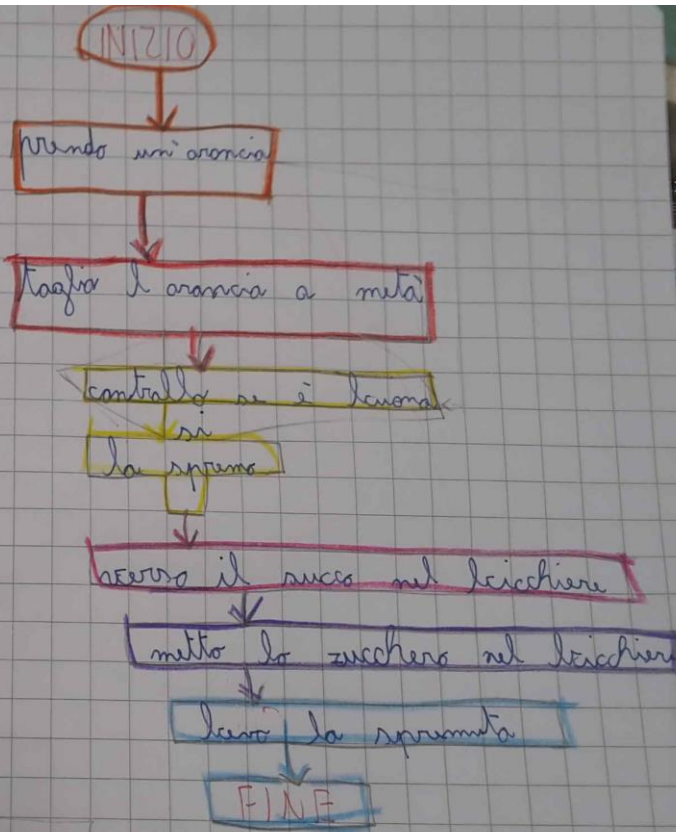 INIZIO
prendo un'arancia
taglio l arancia a metà
controllo se è buona
si
la spremo
verso il succo nel bicchiere
metto lo zucchero nel bicchiere
bevo la spremuta
FINE